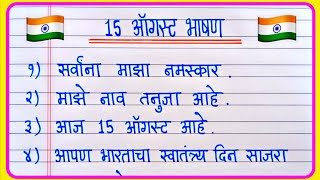 15 ऑगस्ट भाषण
१) सर्वांना माझा नमस्कार.
२) माझे नाव तनुजा आहे.
३) आज 15 ऑगस्ट आहे.
४) आपण भारताचा स्वातंत्र्य दिन साजरा